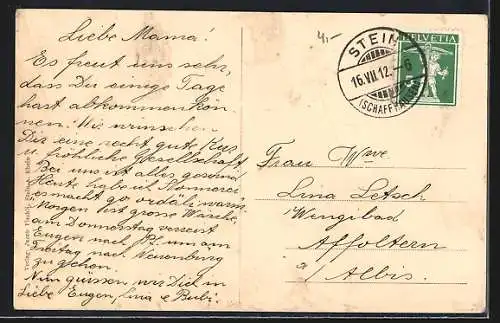 Liebe Mama!
Es freut uns sehr,
dass Du einige Tage
hast abkommen kön-
nen. Wir wünschen
Dir eine recht gute Kur
u. fröhliche Gesellschaft
Bei uns ist alles gesund
Heute habe ich
es macht so warm
Morgen ist grosse Wäsche,
am Donnerstag verreist
Eugen nach um am
Freitag nach Neuenburg
zu gehen.
Nun grüssen wir Dich in
Liebe Eugen, Lina & Bubi.
4.-
STEIN
16.VII.12.-6
(SCHAFFHAUSEN)
HELVETIA
5
Frau Wwe
Lina Letsch
Wengibad
Affoltern
a/Albis.